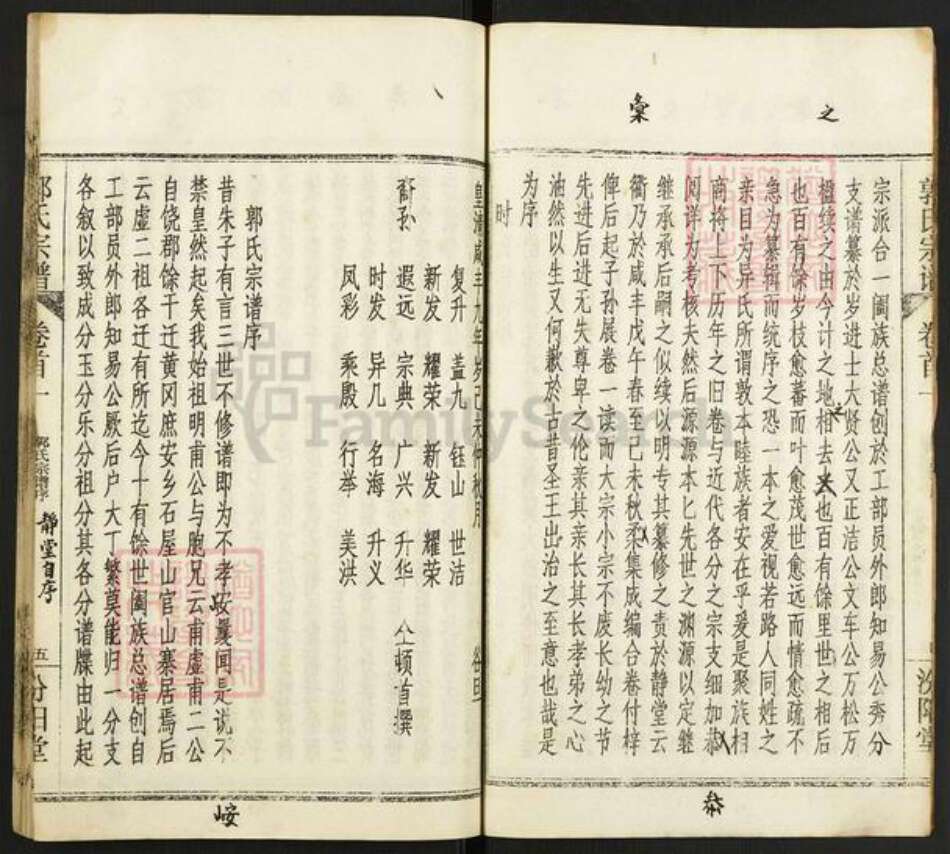 之
彙
宗派合一阖族总谱创於工部员外郎知易公秀分
支谱纂於岁进士大贤公又正洁公文车公万松万
楹续之由今计之地相去也百有馀里世之相后
也百有馀岁枝愈蕃而叶愈茂世愈远而情愈疏不
急为纂辑而统序之恐一本之爱视若路人同姓之
亲目为异氏所谓敦本睦族者安在乎爰是聚族相
商将上下历年之旧卷与近代各分之宗支细加恭
阅详为考核夫然后源源本匕先世之渊源以定继
继承承后嗣之似续以明专其纂修之责於静堂云
衢乃於咸丰戊午春至己未秋汇集成编合卷付梓
俾后起子孙展卷一读而大宗小宗不废长幼之节
先进后进无失尊卑之伦亲其亲长其长孝弟之心
油然以生又何歉於古昔圣王出治之至意也哉是
为序
时
恭
皇清咸丰九年岁己未仲秋月
复升 盖九 钰山 世洁
新发 耀荣 新发 耀荣
裔孙 遐远 宗典 广兴 升华 仝顿首撰
时发 异几 名海 升义
凤彩 乘殿 行举 美洪
郭氏宗谱序
昔朱子有言三世不修谱即为不孝安曩闻是说不
禁皇然起矣我始祖明甫公与胞兄云甫虚甫二公
自饶郡馀干迁黄冈庶安乡石屋山官山寨居焉后
云虚二祖各迁有所迄今十有馀世阖族总谱创自
工部员外郎知易公厥后户大丁繁莫能归一分支
各叙以致成分玉分乐分祖分其各分谱牒由此起
郭氏宗谱 卷首一 郭氏宗谱序 静堂自序 五 汾阳堂
峖
郭氏宗谱 卷首一 汾阳堂
FamilySearch